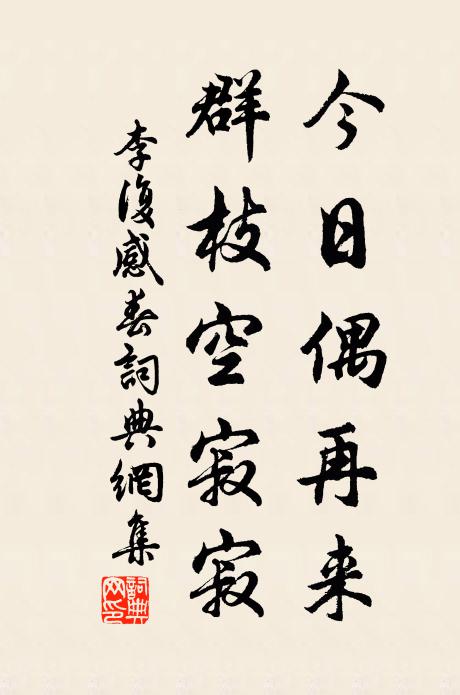 今日偶再来
群枝空寂寂
李復感春詞典網集
詞典网印